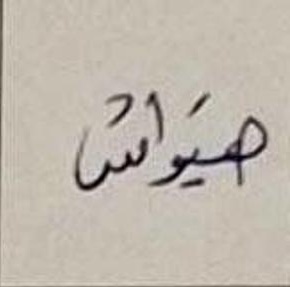 صيَواش